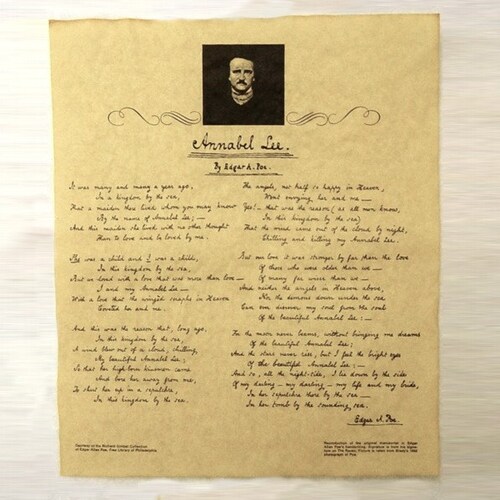 Annabel Lee.
By Edgar A. Poe.
It was many and many a year ago,
In a kingdom by the sea,
That a maiden there lived whom you may know
By the name of Annabel Lee; —
And this maiden she lived with no other thought
Than to love and be loved by me.
She was a child and I was a child,
In this kingdom by the sea,
But we loved with a love that was more than love —
I and my Annabel Lee —
With a love that the wingéd seraphs in Heaven
Coveted her and me.
And this was the reason that, long ago,
In this kingdom by the sea,
A wind blew out of a cloud, chilling
My beautiful Annabel Lee;
So that her high-born kinsmen came
And bore her away from me,
To shut her up in a sepulchre,
In this kingdom by the sea.
The angels, not half so happy in Heaven,
Went envying her and me —
Yes! — that was the reason (as all men know,
In this kingdom by the sea)
That the wind came out of the cloud by night,
Chilling and killing my Annabel Lee.
But our love it was stronger by far than the love
Of those who were older than we —
Of many far wiser than we —
And neither the angels in Heaven above,
Nor the demons down under the sea
Can ever dissever my soul from the soul
Of the beautiful Annabel Lee: —
For the moon never beams, without bringing me dreams
Of the beautiful Annabel Lee;
And the stars never rise, but I feel the bright eyes
Of the beautiful Annabel Lee; —
And so, all the night-tide, I lie down by the side
Of my darling — my darling — my life and my bride,
In her sepulchre there by the sea —
In her tomb by the sounding sea.
Edgar A. Poe.
Courtesy of the Richard Gimbel Collection
of Edgar Allan Poe, Free Library of Philadelphia.
Reproduction of the original manuscript in Edgar
Allan Poe's handwriting. Signature is from the